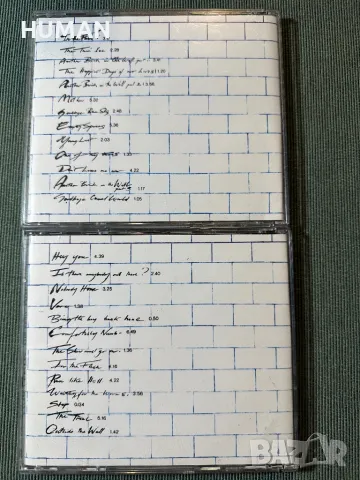 HUMAN
In the Flesh?
The Thin Ice
Another Brick in the Wall part 1
The Happiest Days of our Lives
Another Brick in the Wall part 2
Mother
Goodbye Blue Sky
Empty Spaces
Young Lust 2:03
One of my turns
Don't leave me now 4.22
Another Brick in the Wall part 3 1.17
Goodbye Cruel World 1:05
Hey you 4.39
Is there anybody out there? 2.40
Nobody Home 3.25
Vera 1.38
Bring the boy back home 0.50
Comfortably Numb 6.49
The Show must go on 1.36
In the Flesh 4.16
Run like Hell 4.22
Waiting for the worms 3.56
Stop 0:34
The Trial 5.16
Outside the Wall 1.42
BAZAR